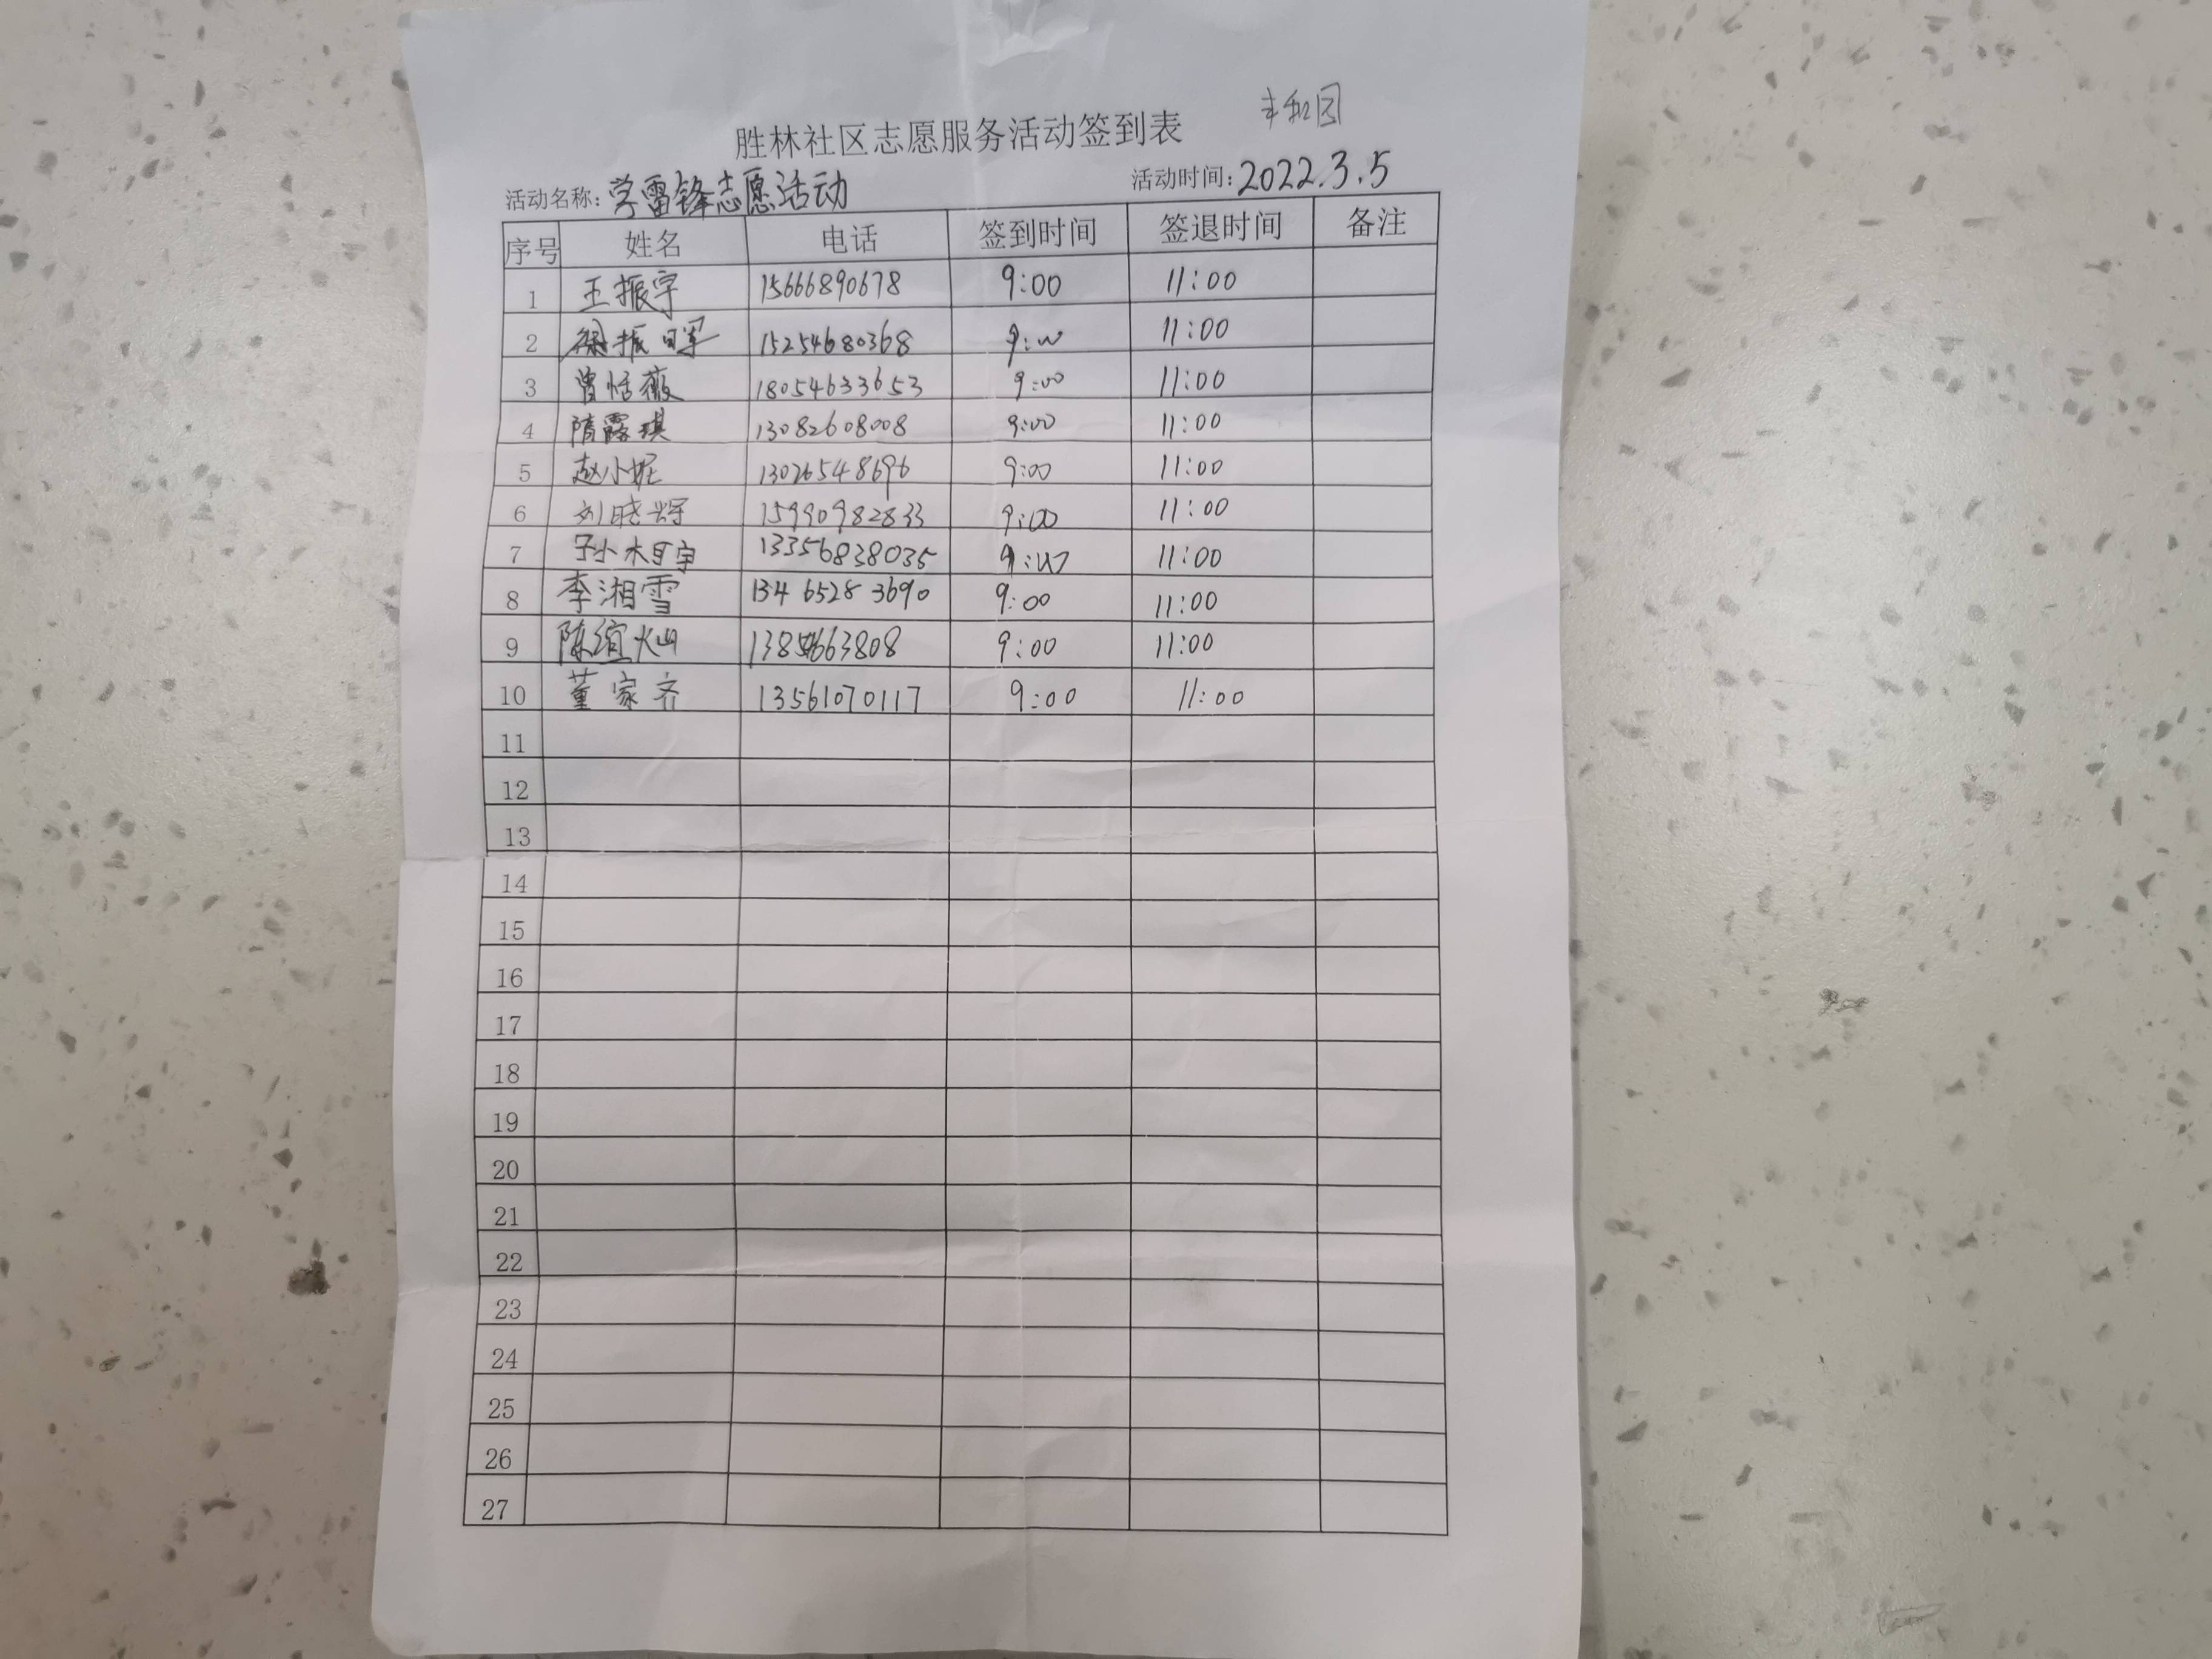 丰和园
胜林社区志愿服务活动签到表
活动名称：学雷锋志愿活动 活动时间：2022.3.5
序号 姓名 电话 签到时间 签退时间 备注
1 王振宇 15666890678 9:00 11:00
2 徐振 15254680368 9:00 11:00
3 曾恬薇 18054633653 9:00 11:00
4 隋露琪 13082608008 9:00 11:00
5 赵小妮 13026548696 9:00 11:00
6 刘晓辉 15990982833 9:00 11:00
7 孙木子宇 13356838035 9:00 11:00
8 李湘雪 134 6528 3690 9:00 11:00
9 陈谊灿 9:00 11:00
10 董家齐 13561070117 9:00 11:00
11
12
13
14
15
16
17
18
19
20
21
22
23
24
25
26
27